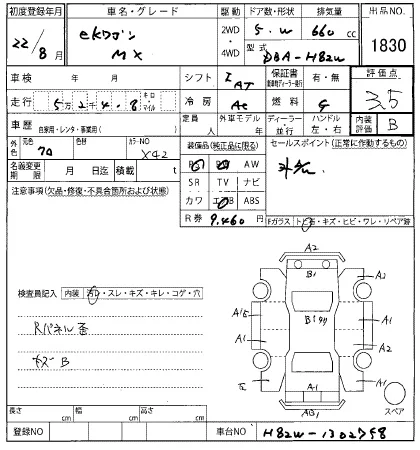 初度登録年月 車名・グレード 駆動 ドア数・形状 排気量 出品NO.
22/8月 ekワゴン MX 2WD・4WD 5.W 660 cc 1830
型式 DBA-H82W
車検 年 月 シフト I AT 保証書 有・無 評価点
走行 5万2千4.8 キロ・マイル 冷房 AC 燃料 G 3.5
車歴 自家用・レンタ・事業用( ) 定員 人 外車モデル年式 ディーラー・並行 ハンドル 左・右 内装評価 B
外色 元色 クロ 色替 カラーNO X42 装備品(純正品に限る) セールスポイント(正常に作動するもの)
AW
名義変更期限 月 日迄 積載 t SR TV ナビ
注意事項(欠品・修復・不具合箇所および状態) カワ
R券 9,460円 Fガラス
A2
B1 A2
検査員記入 内装 ・スレ・キズ・キレ・コゲ・穴
A1
Rパネル歪 A1
A1 A2
キズB
A1
スペア
長さ cm 幅 cm 高さ cm
登録NO 車台NO H82W-1302758